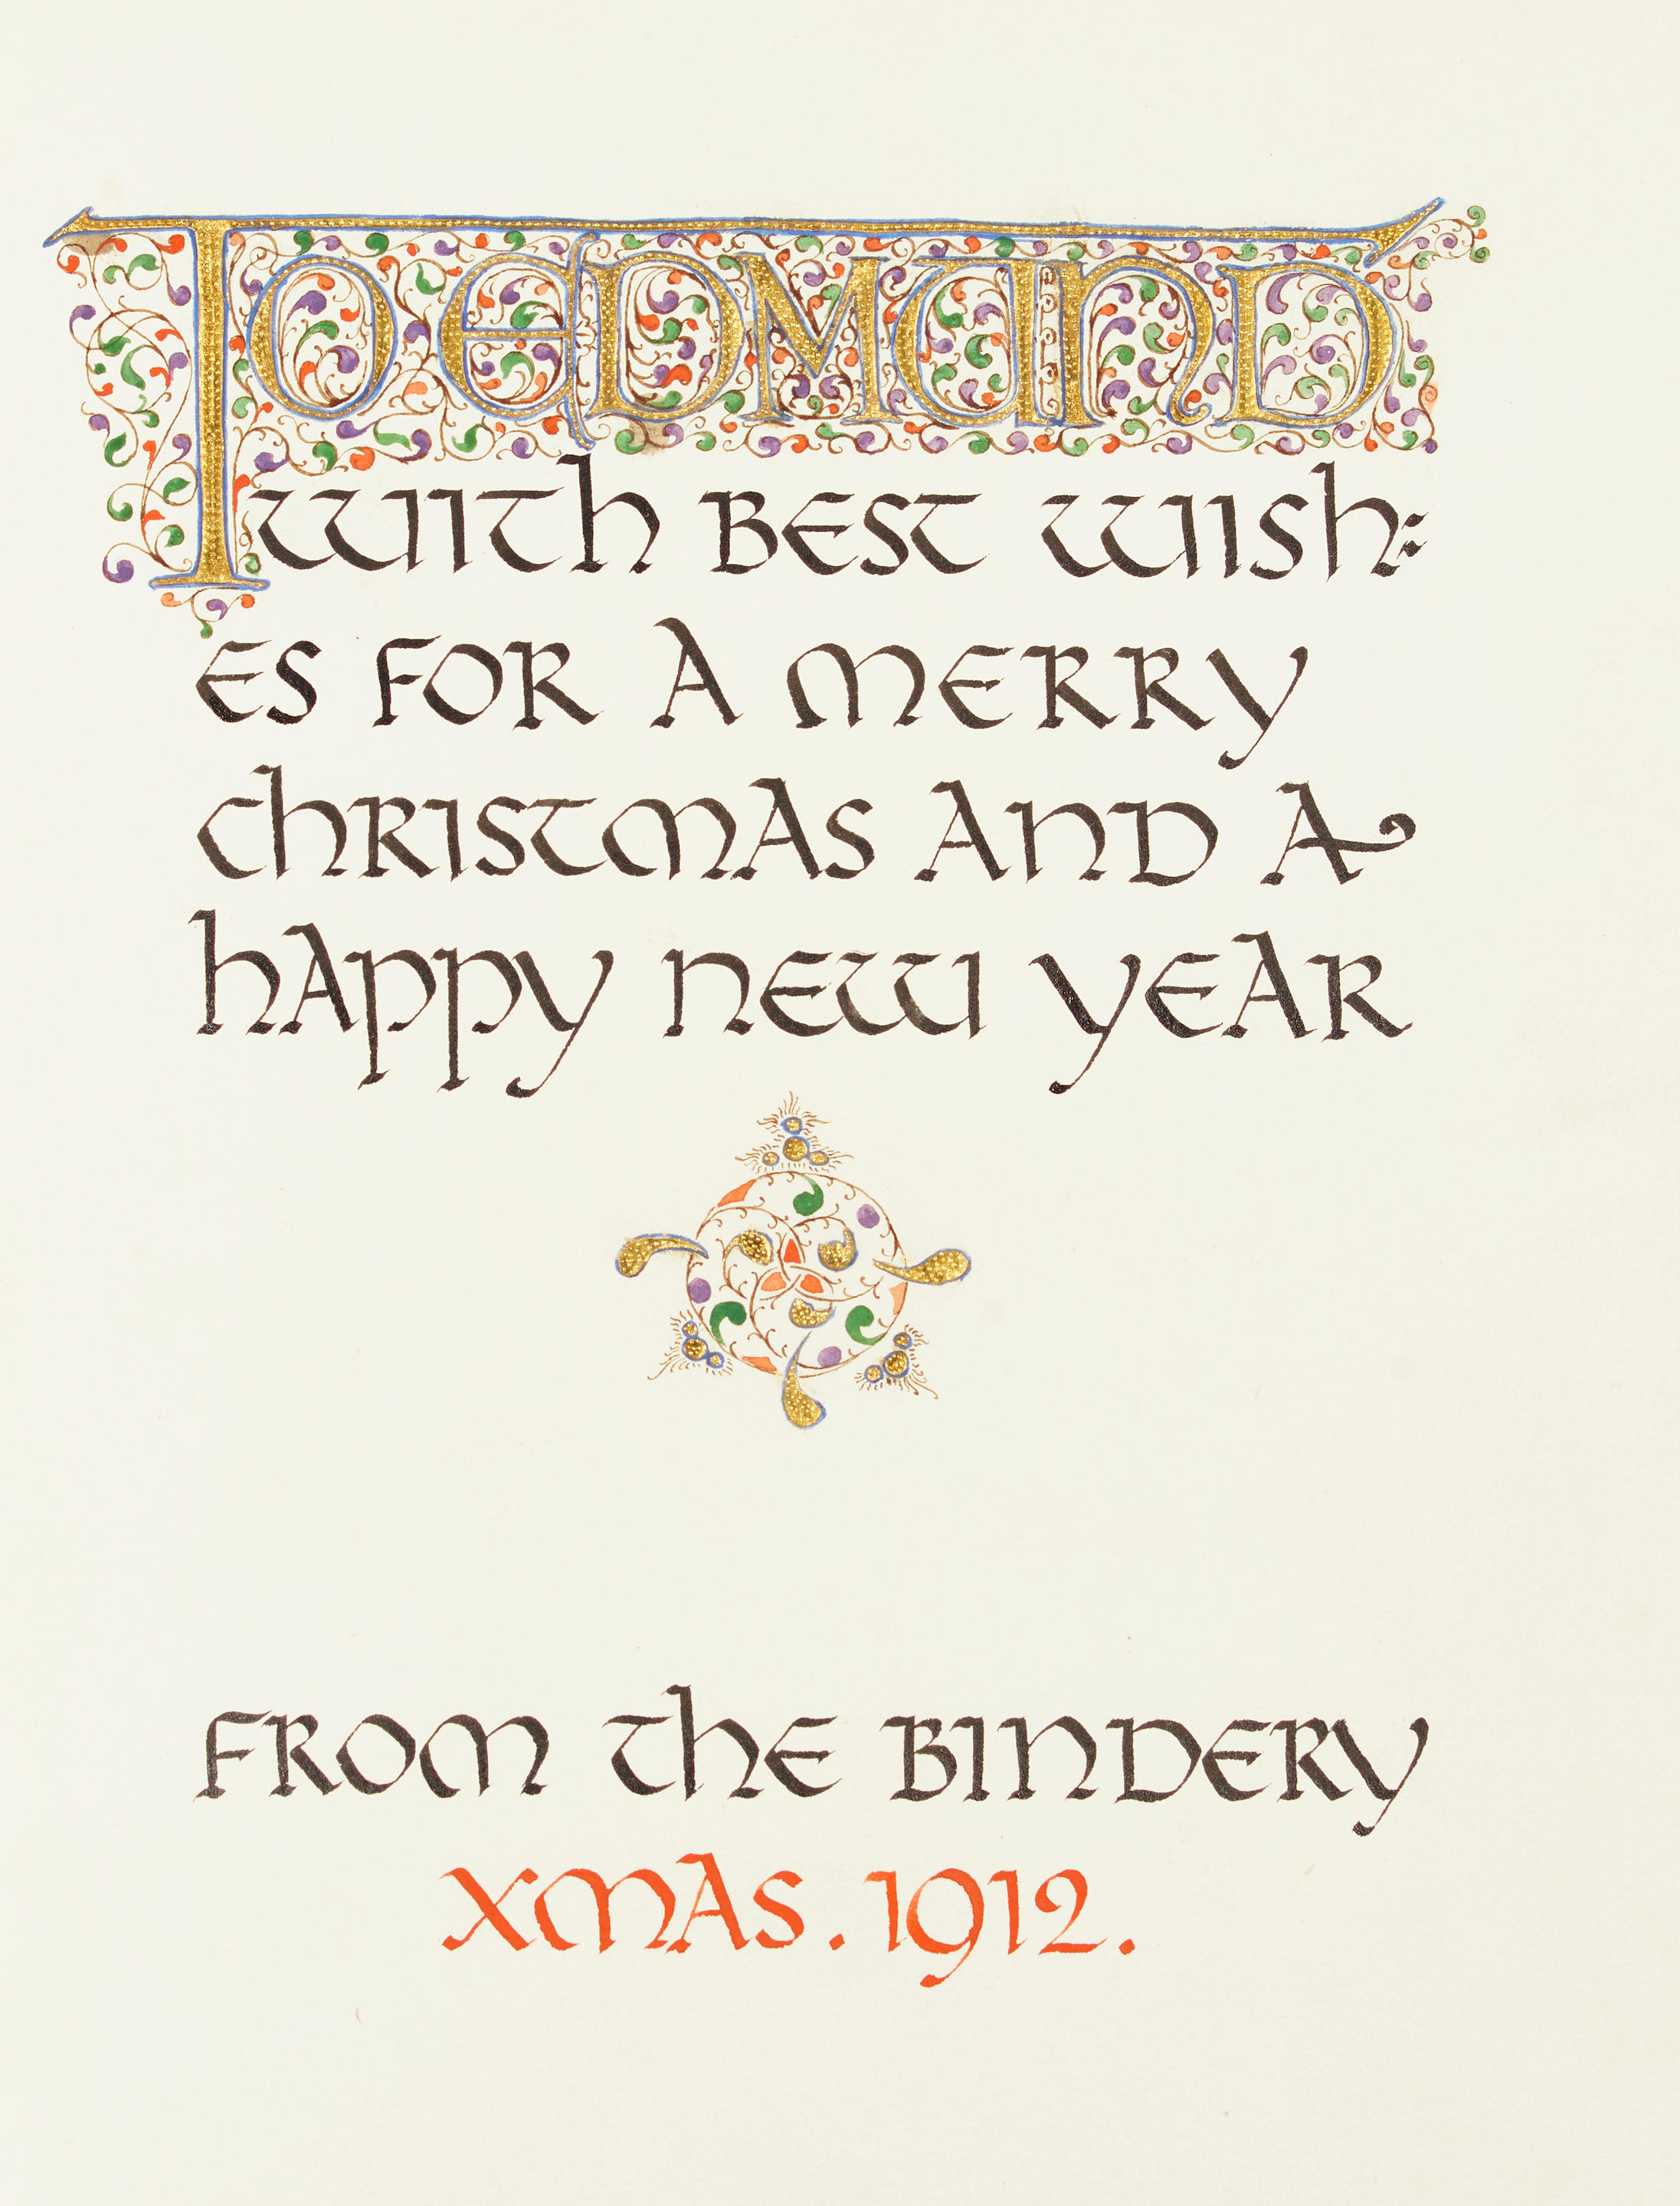 TO EDMUND
WITH BEST WISH:
ES FOR A MERRY
CHRISTMAS AND A
HAPPY NEW YEAR
FROM THE BINDERY
XMAS. 1912.